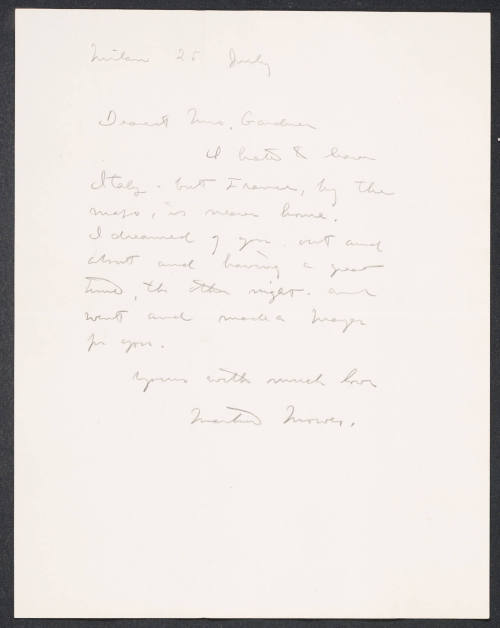 Milan 25 July
Dearest Mrs. Gardner
I hate to leave
Italy. but France, by the
maps, is nearer home.
I dreamed of you out and
about and having a great
time, the other night. and
went and made a prayer
for you.
Yours with much love
Martin Mower.